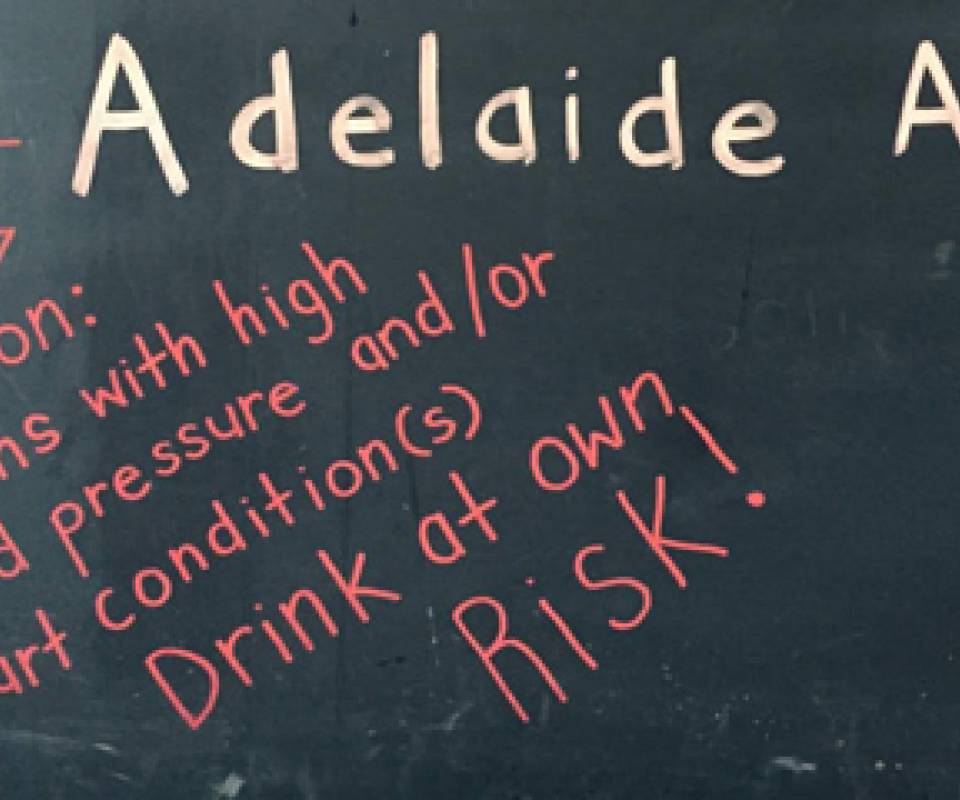 Adelaide A
on:
ns with high
d pressure and/or
art condition(s)
Drink at own
RiSK!